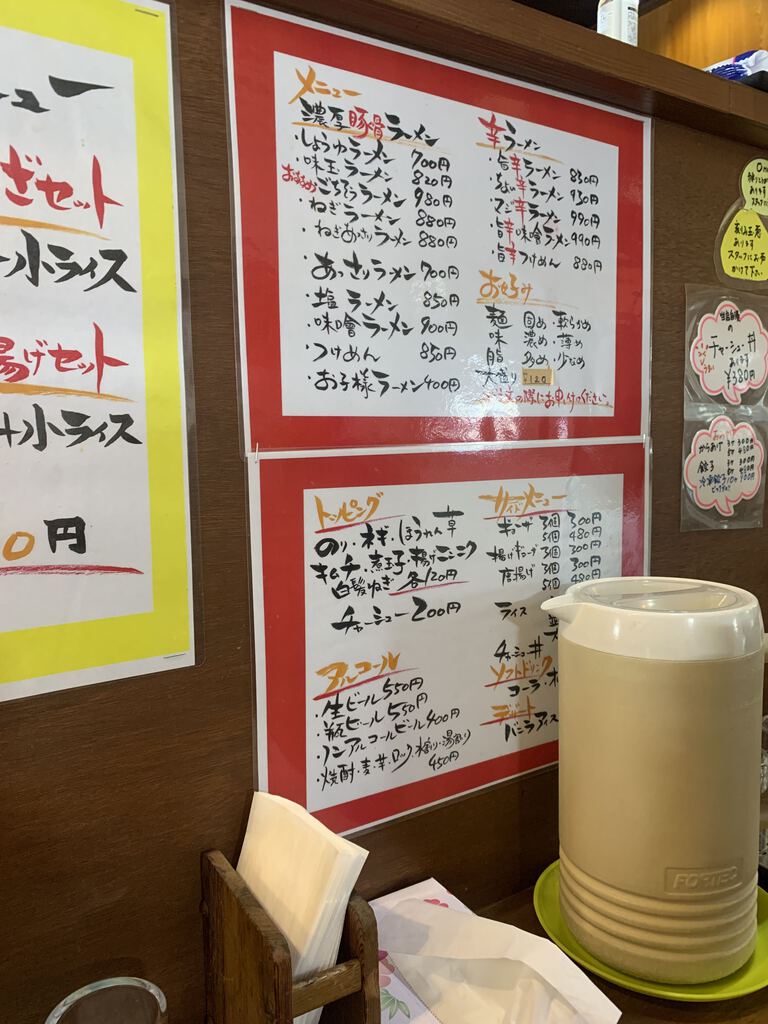 ュー
ざセット
小ライス
揚げセット
+小ライス
0円
メニュー
濃厚豚骨ラーメン
・しょうゆラーメン 700円
・味玉ラーメン 820円
おすすめ ごろごろラーメン 980円
・ねぎラーメン 880円
・ねぎあっさりラーメン 880円
・あっさりラーメン 700円
・塩ラーメン 850円
・味噌ラーメン 900円
・つけめん 850円
・お子様ラーメン 400円
辛ラーメン
・旨辛ラーメン 830円
辛ラーメン 930円
・マジ辛ラーメン 990円
・旨辛味噌ラーメン 990円
・旨辛つけめん 880円
お好み
麺 固め・軟らかめ
味 濃め・薄め
脂 多め・少なめ
大盛り ¥120
ご注文の際にお申し付けください。
トッピング
のり・ネギ・ほうれん草
キムチ・煮玉子・揚げニンニク
白髪ねぎ 各120円
チャーシュー 200円
アルコール
・生ビール 550円
・瓶ビール 550円
・ノンアルコールビール 400円
・焼酎・麦・芋・ロック・水割り・湯割り
450円
サイドメニュー
ギョーザ 3個 300円
5個 480円
揚げギョーザ 3個 300円
唐揚げ 3個 300円
5個 480円
ライス
チャーシュー丼
ソフトドリンク
コーラ・
デザート
バニラアイス
あります
スタッフにお声
かけて下さい
の
チャーシュー丼
あります
¥380円
からあげ 3ケ 300円
餃子
冷凍餃子
FORTEC